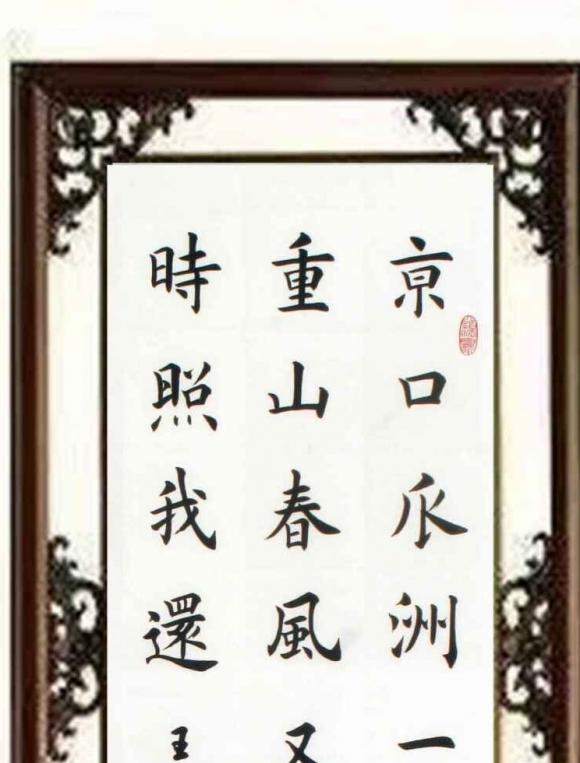 京口瓜洲一
重山春風又
時照我還王